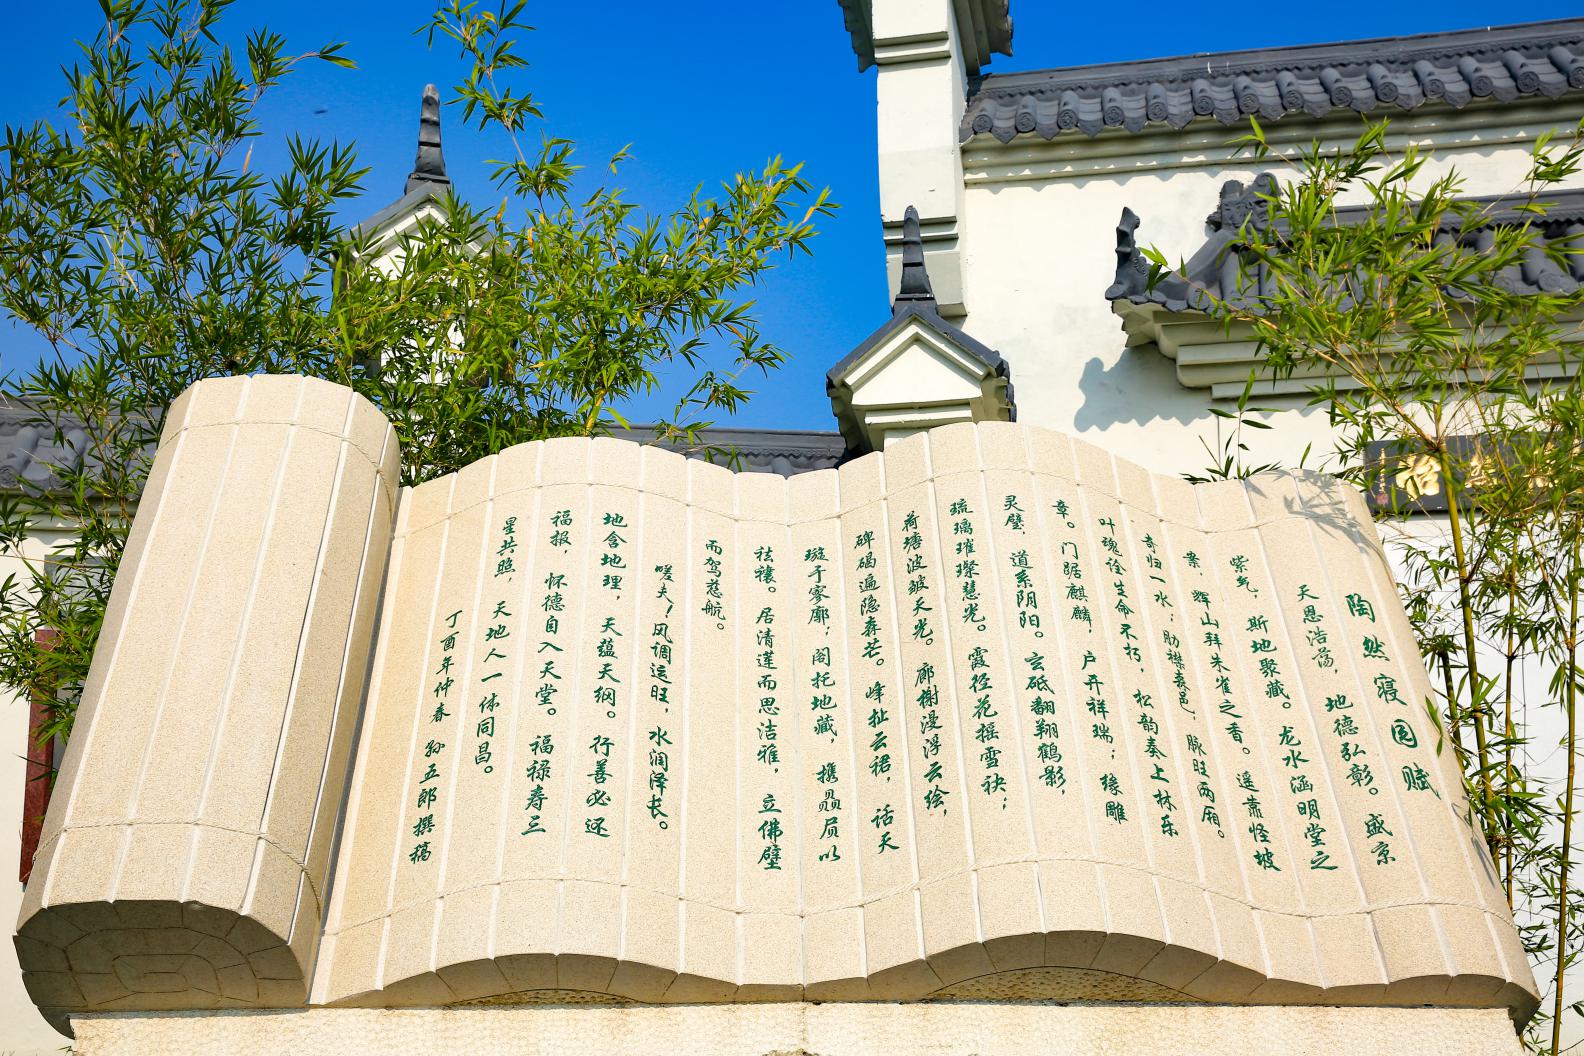 陶然寝园赋
天恩浩荡，地德弘彰。盛京
紫气，斯地聚藏。龙水涵明堂之
案，辉山拜朱雀之香。遥靠怪坡
奇归一水；肋襟袤邑，脉旺两厢。
叶魂诠生命不朽，松韵奏上林乐
章。门踞麒麟，户开祥瑞；缘雕
灵璧，道系阴阳。玄砥翻翔鹤影，
琉璃璀璨慧光。霞径花摇雪袂；
荷塘波皱天光。廊榭漫浮云绘，
碑碣遍隐森芒。峰扯云裙，话天
璇于寥廓；阁托地藏，携赑屃以
祛禳。居清莲而思洁雅，立佛壁
而驾慈航。
嗟夫！风调运旺，水润泽长。
地含地理，天蕴天纲。行善必还
福报，怀德自入天堂。福禄寿三
星共照，天地人一体同昌。
丁酉年仲春 孙五郎撰稿